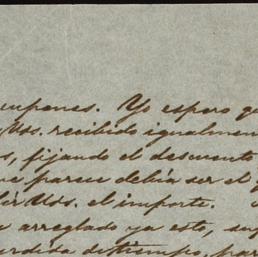 cupones. Yo espero q
Vds. recibido igualmen
s, fijando el descuento
ue parece debia ser el
Vds. el importe.
arreglado ya esto, su
perdida de tiempo, par